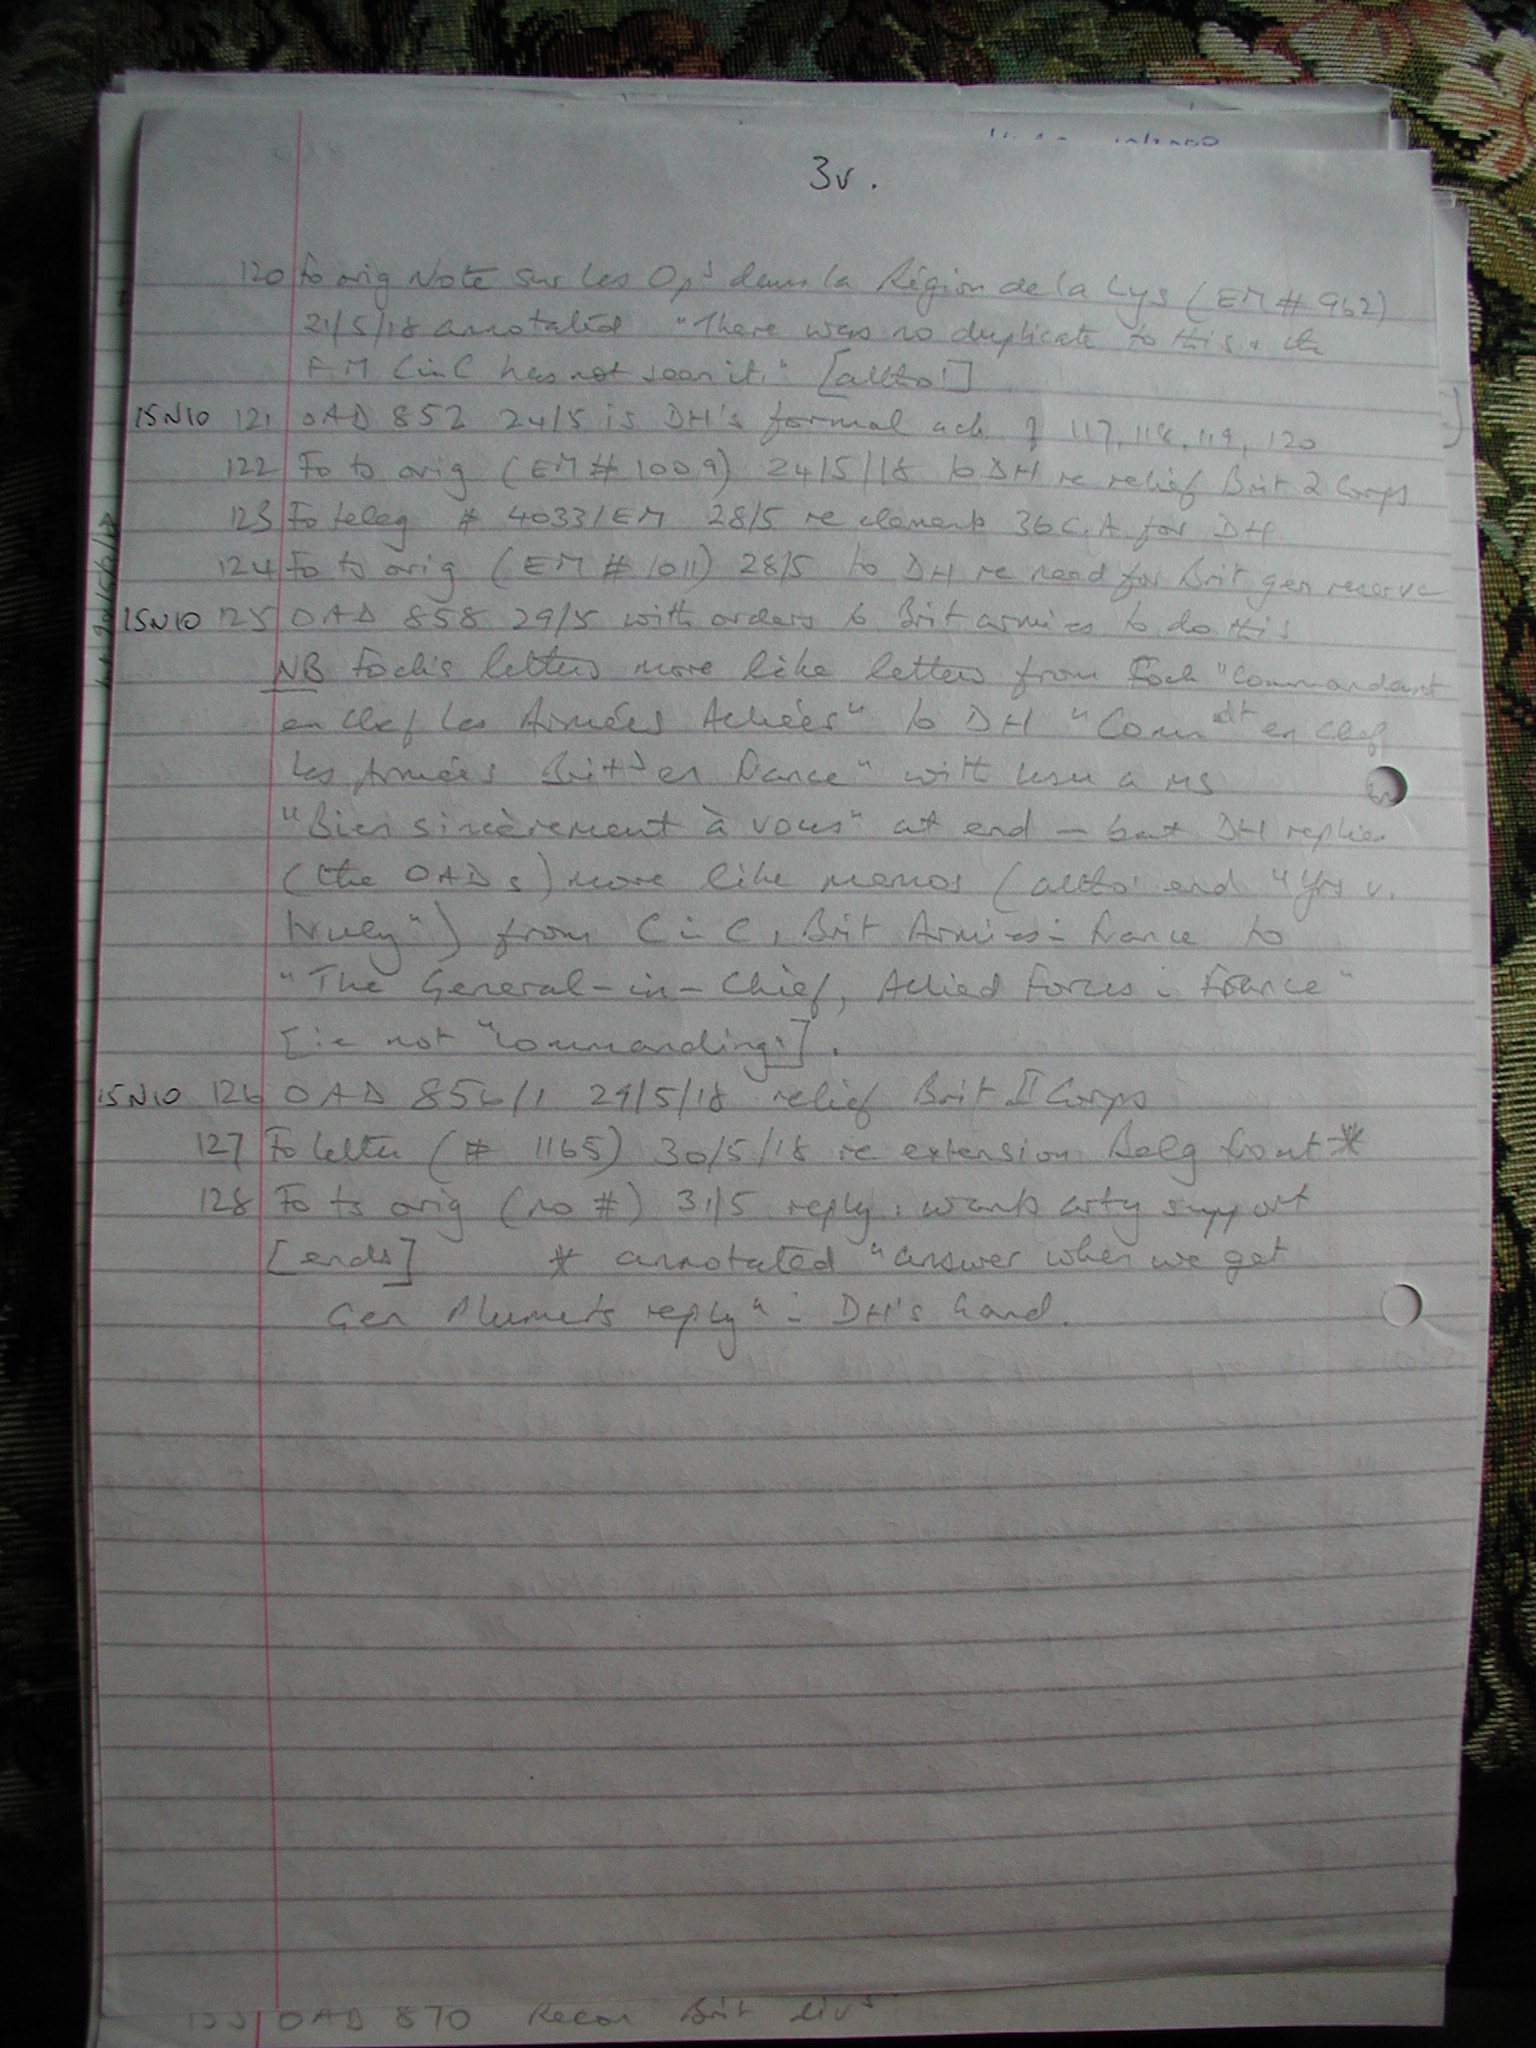 3v.
120 Fo orig Note sur les Ops dans la Région de la Lys (EM # 962)
21/5/18 annotated "There was no duplicate to this & the
FM CinC has not seen it." [autho!]
15N10 121 OAD 852 24/5 is DH's formal ack of 117, 118, 119, 120
122 Fo ts orig (EM # 1009) 24/5/18 to DH re relief Brit 2 Corps
123 Fo teleg # 4033/EM 28/5 re elements 36 C.A for DH
124 Fo ts orig (EM # 1011) 28/5 to DH re need for Brit gen reserve
15N10 125 OAD 858 29/5 with orders to Brit armies to do this
NB Foch's letters more like letters from Foch "Commandant
en Chef les Armées Alliées" to DH "Comdt en Chef
les Armées Brits en France" with usu a MS
"Bien sincèrement à vous" at end – but DH replies
(the OADs) more like memos (altho' end "Yrs v.
truly") from C in C, Brit Armies in France to
"The General-in-Chief, Allied Forces in France"
[ie not "Commanding"].
15N10 126 OAD 856/1 29/5/18 relief Brit II Corps
127 Fo letter (# 1165) 30/5/18 re extension Belg front *
128 Fo ts orig (no #) 31/5 reply, wants arty support
[ends] * annotated "answer when we get
Gen Plumer's reply" in DH's hand.
OAD 870 Recon Brit divs